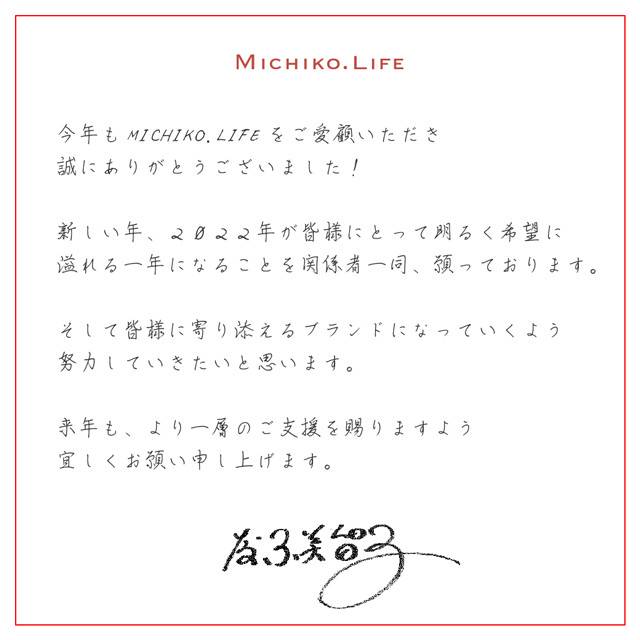 MICHIKO.LIFE
今年も MICHIKO.LIFE をご愛顧いただき
誠にありがとうございました！
新しい年、2022年が皆様にとって明るく希望に
溢れる一年になることを関係者一同、願っております。
そして皆様に寄り添えるブランドになっていくよう
努力していきたいと思います。
来年も、より一層のご支援を賜りますよう
宜しくお願い申し上げます。